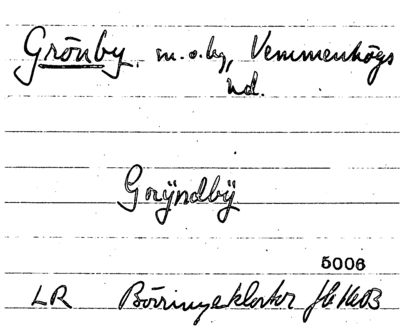 Grönby, m. o. by, Vemmenhögs
hd.
Grÿndbÿ
5006
LR Börringekloster